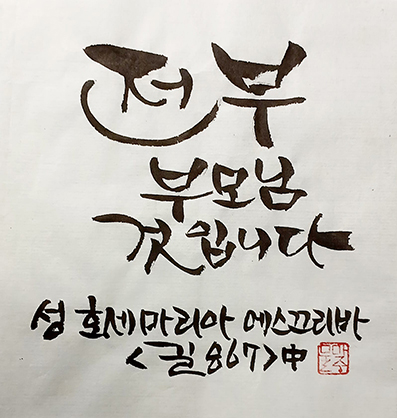 전부
부모님
것입니다
성 호세마리아 에스끄리바
<길 867>中